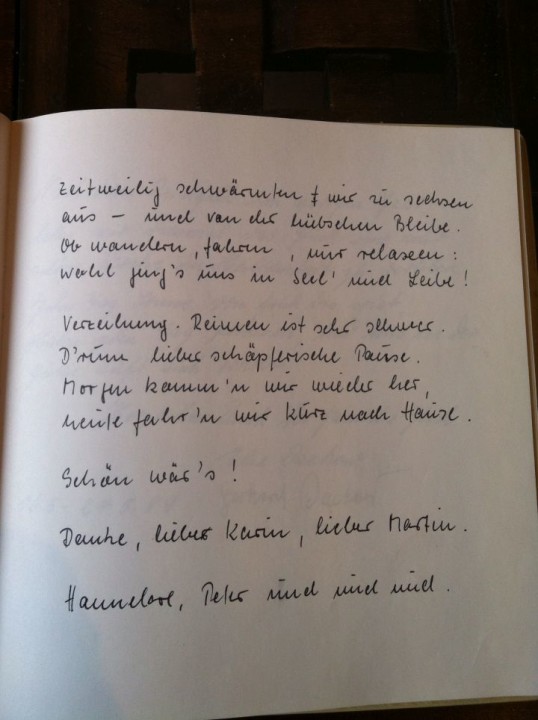 Zeitweilig schwärmten wir zu sechsen
aus – und von der hübschen Bleibe.
Ob wandern, fahren, nur relaxen:
Wohl ging's uns in Seel' und Leibe!
Verzeihung. Reimen ist sehr schwer.
D'rum lieber schöpferische Pause.
Morgen komm'n wir wieder her,
heute fahr'n wir kurz nach Hause.
Schön wär's!
Danke, liebe Karin, lieber Martin.
Hannelore, Peter und und und.